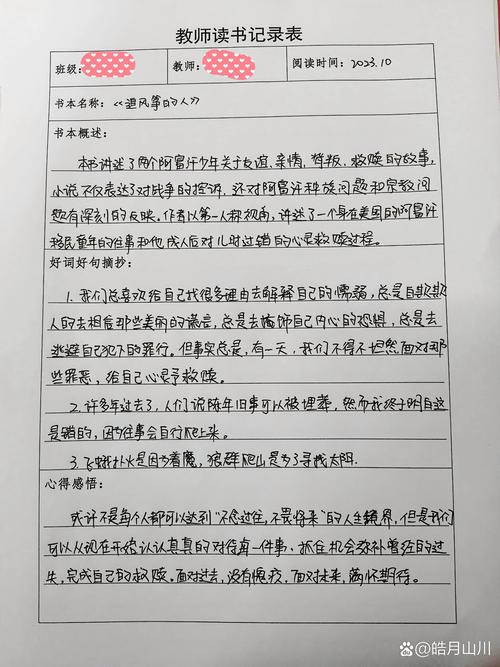 教师读书记录表
班级： 教师： 阅读时间：2023.10
书本名称：《追风筝的人》
书本概述：
本书讲述了两个阿富汗少年关于友谊、亲情、背叛、救赎的故事，
小说不仅表达了对战争的控诉，还对阿富汗种族问题和宗教问
题有深刻的反映。作者以第一人称视角，讲述了一个身在美国的阿富汗
移民童年的往事和他成人后对儿时过错的心灵救赎过程。
好词好句摘抄：
1. 我们总喜欢给自己找很多理由去解释自己的懦弱，总是自欺欺
人的去相信那些美丽的谎言，总是去掩饰自己内心的恐惧，总是去
逃避自己犯下的罪行。但事实总是，有一天，我们不得不坦然面对那
些罪恶，给自己心灵予救赎。
2. 许多年过去了，人们说陈年旧事可以被埋葬，然而我终于明白这
是错的，因为往事会自行爬上来。
3. 飞蛾扑火是因为着魔，狼群爬山是为了寻找太阳.
心得感悟：
或许不是每个人都可以达到“不念过往，不畏将来”的人生境界，但是我们
可以从现在开始认认真真的对待每一件事，抓住机会弥补曾经的过
失，完成自己的救赎。面对过去，没有愧疚，面对未来，满怀期待。
@皓月山川